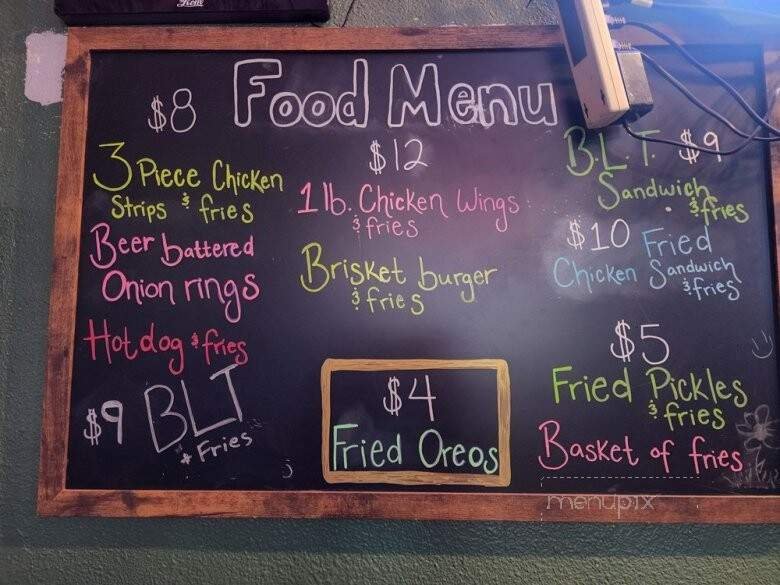 Food Menu
$8
3 Piece Chicken
Strips & fries
Beer battered
Onion rings
Hotdog & fries
$9 BLT
+ Fries
$12
1 lb. Chicken Wings
& fries
Brisket burger
& fries
$4
Fried Oreos
B.L.T. $9
Sandwich
& fries
$10 Fried
Chicken Sandwich
& fries
$5
Fried Pickles
& fries
Basket of fries
menupix